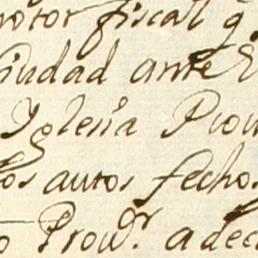 motor fiscal q
Ciudad ante
Yglesia Prou
los autos fechos
Prou.r a dec